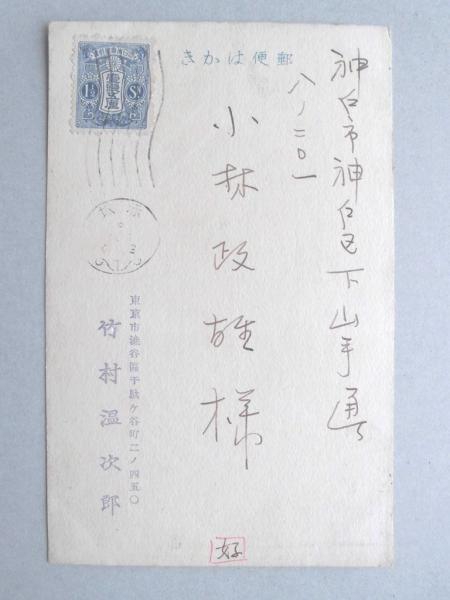 郵便はかき
神戸市神戸区下山手通
八ノ二〇一
小林政雄様
1½ Sn
東京市澁谷區千駄ヶ谷町二ノ四五〇
竹村温次郎
好